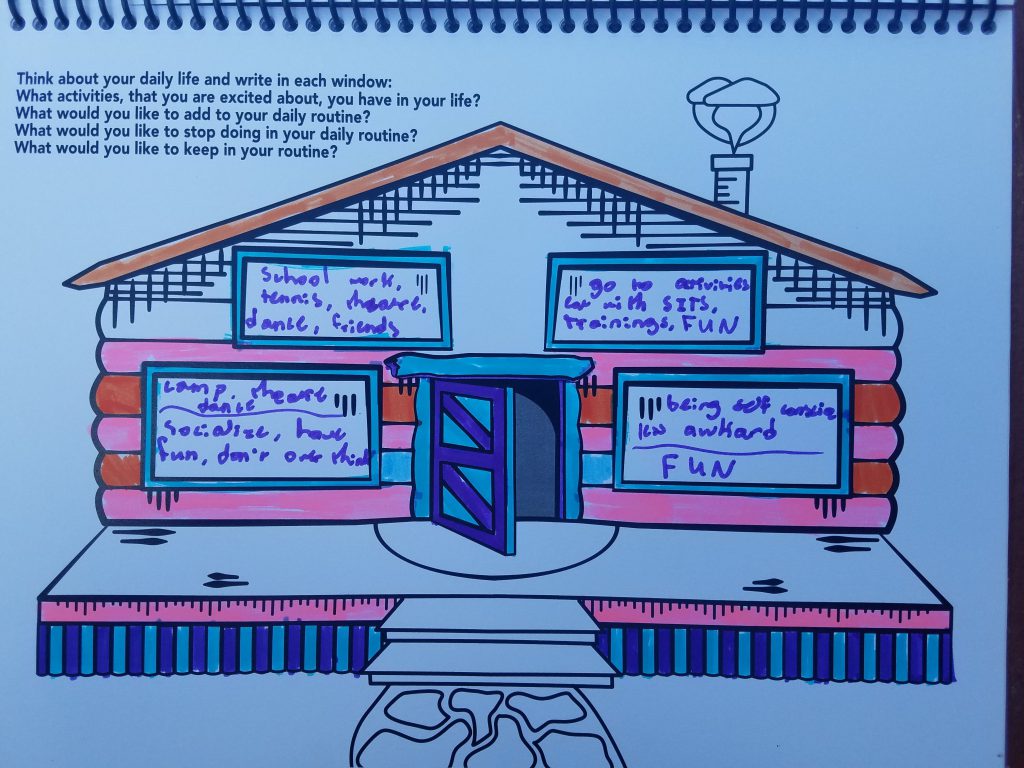 Think about your daily life and write in each window:
What activities, that you are excited about, you have in your life?
What would you like to add to your daily routine?
What would you like to stop doing in your daily routine?
What would you like to keep in your routine?
School work,
tennis, theatre,
dance, friends
go to activities
eat with SITS,
trainings, FUN
camp, theatre
dance
socialize, have
fun, don't over think
being self
awkard
FUN